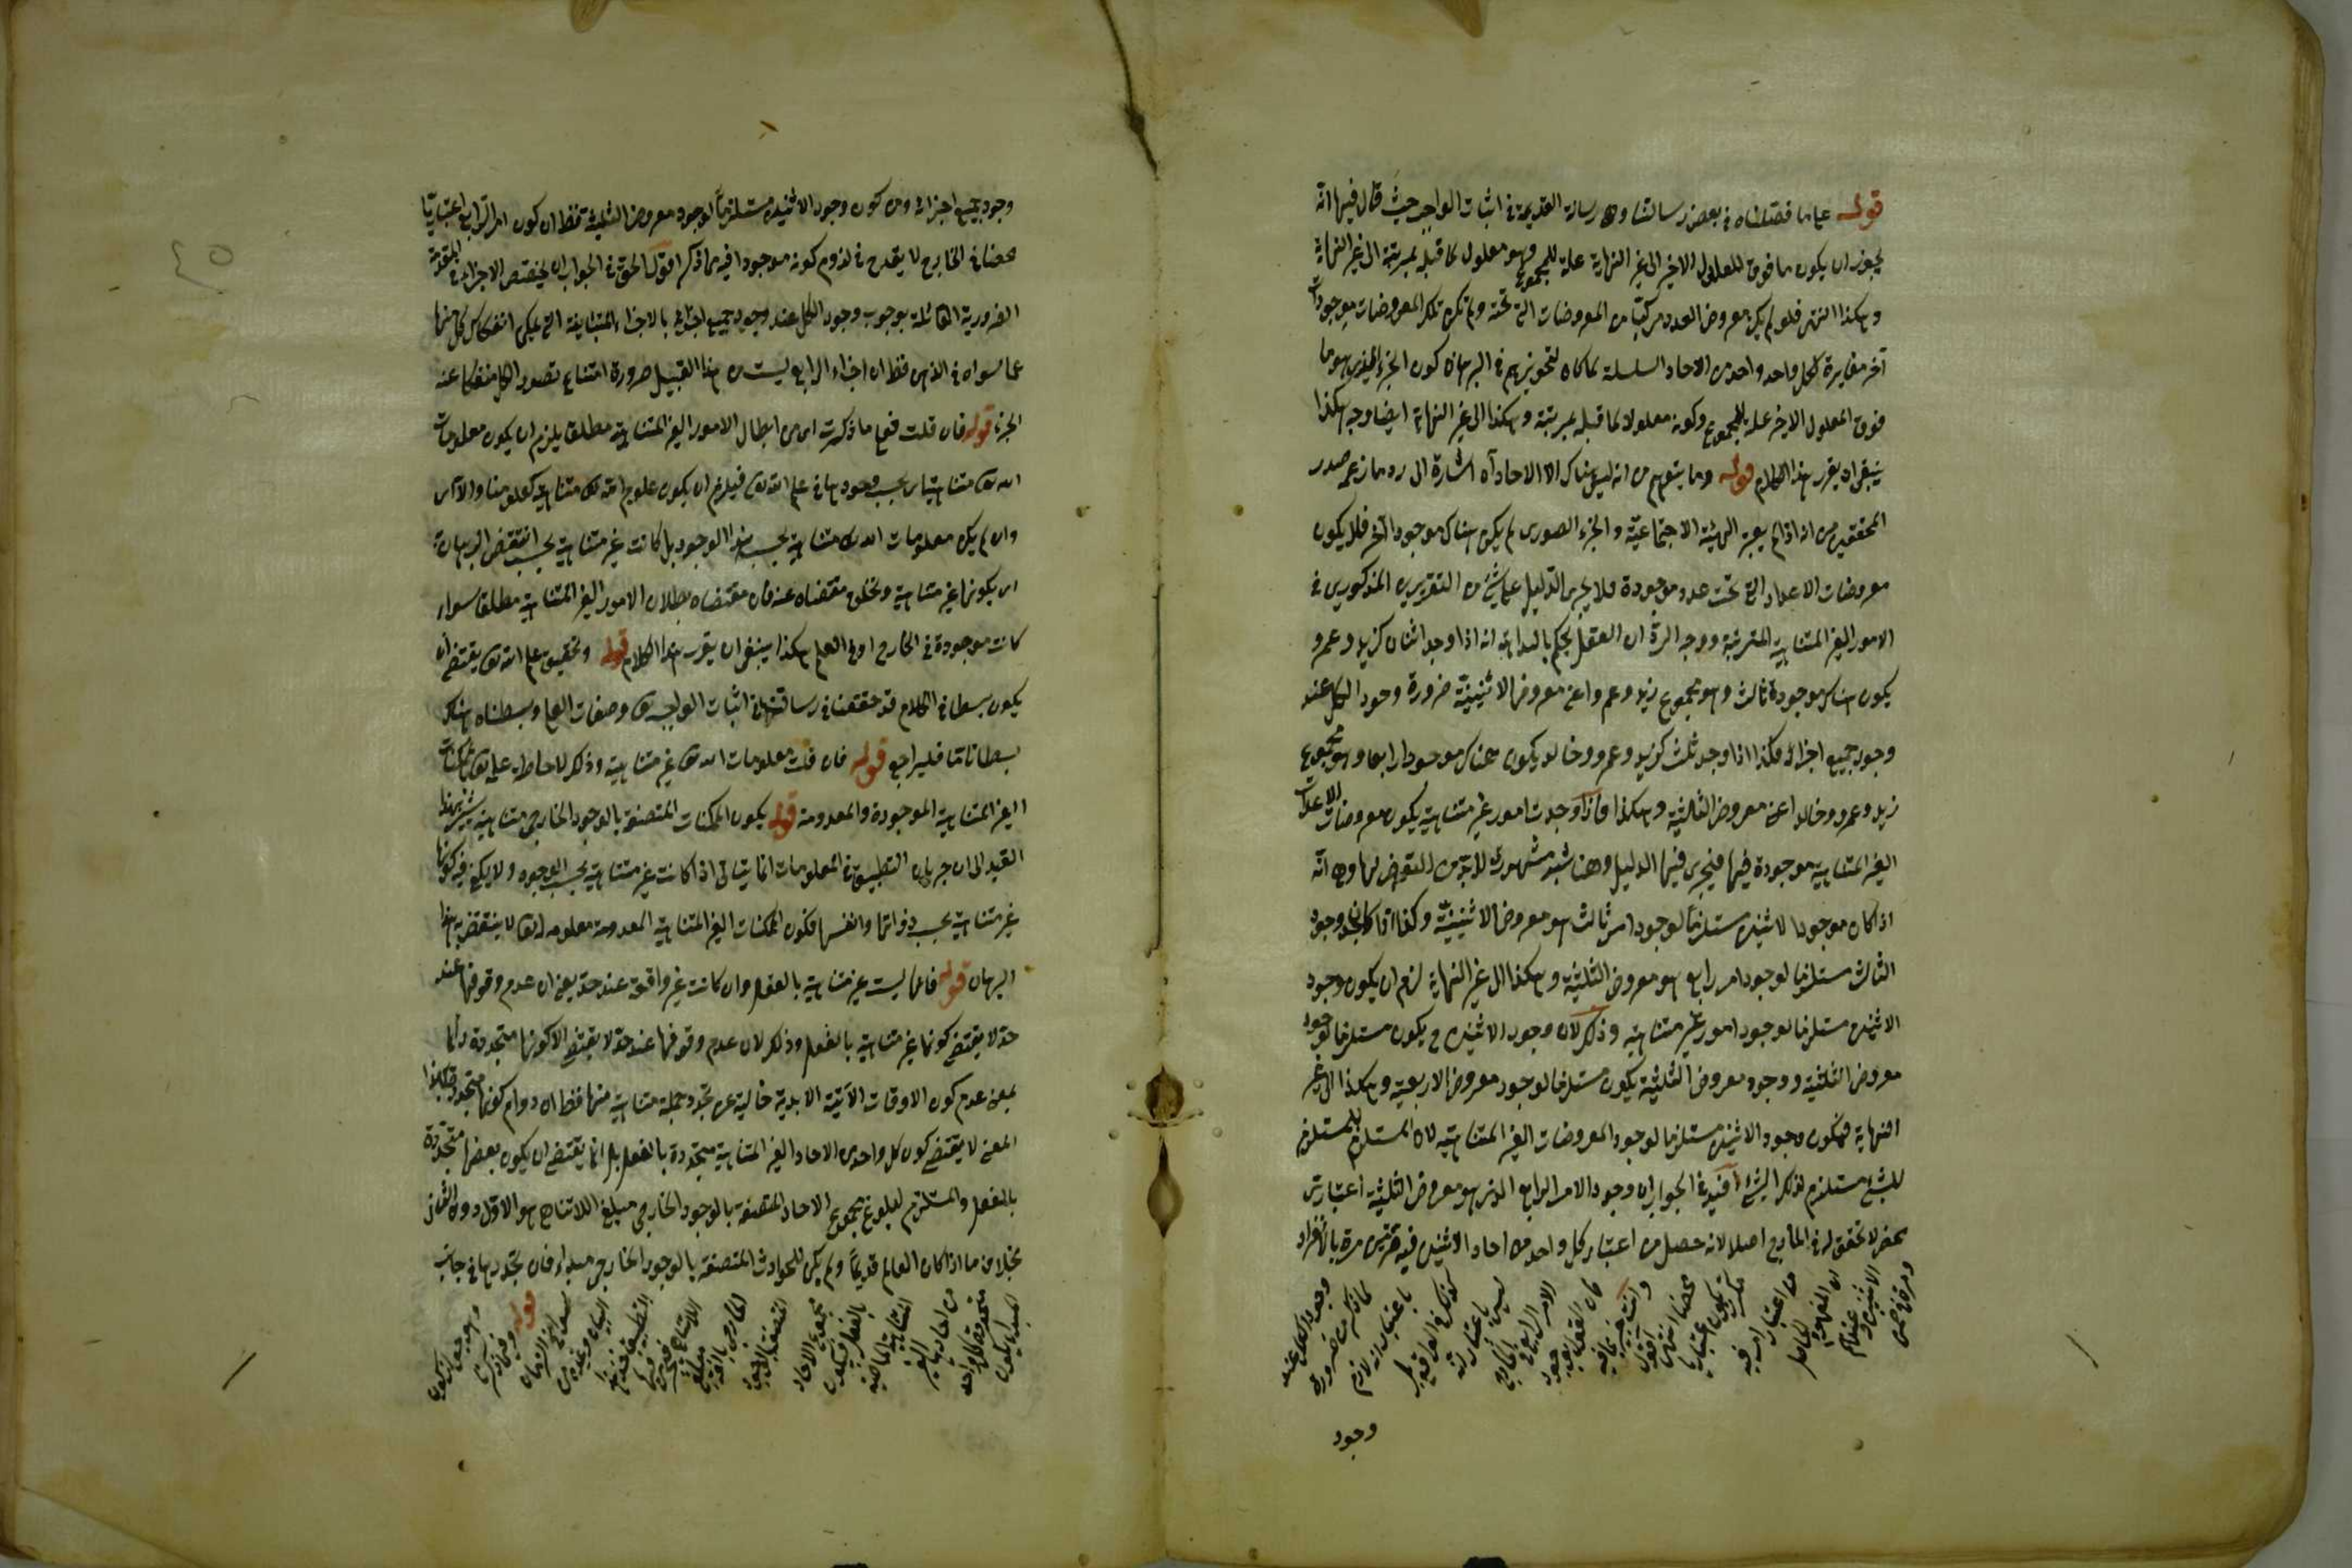 قوله على ما فصلناه في بعض رسالتنا وهي رسالة القديمة في اثبات الواجب حيث قال فيها انه
يجوز ان يكون ما فوق المعلول الاخير الى غير النهاية علة للمجموع وهو معلول لما قبله بمرتبة الى غير النهاية
وهكذا انتهى فلو لم يكن معروض العدد مركبا من المعروضات التي تحته ولم تكن تلك المعروضات موجودات
آخر مغايرة لكل واحد واحد من الآحاد السلسلة لما كان لتجويزهم في البرهان كون الجزء الذي هو ما
فوق المعلول الاخير علة للمجموع وكونه معلولا لما قبله بمرتبة وهكذا الى غير النهاية ايضا وجه هكذا
ينبغي ان يقرر هذا الكلام قوله وما يتوهم من انه ليس هناك الا الاحاد آه اشارة الى رد ما زعم صدر
المحققين من انه اذا لم يعتبر الهيئة الاجتماعية والجزء الصوري لم يكن هناك موجود آخر فلا يكون
معروضات الاعداد التي تحت عدد موجودة فلا يجري الدليل على شيء من التقريرين المذكورين في
الامور الغير المتناهية المترتبة ووجه الرد ان العقل يحكم بالبداهة انه اذا وجد اثنان كزيد وعمرو
يكون هناك موجودة ثالث وهو مجموع زيد وعمرو اعني معروض الاثنينية ضرورة وجود الكل عند
وجود جميع اجزائه فكذا اذا وجد ثلث كزيد وعمرو وخالد يكون هناك موجودا رابعا وهو مجموع
زيد وعمرو وخالد اعني معروض الثلاثية وهكذا فاذا وجدت امور غير متناهية يكون معروضات الاعداد
الغير المتناهية موجودة فيها فيجري فيها الدليل وهنا شبهة مشهورة لا بد من التعرض لها وهي انه
اذا كان موجودا لاثنين مستلزما لوجود امر ثالث هو معروض الاثنينية وكذا اذا كان وجود
الثالث مستلزما لوجود امر رابع هو معروض الثلثية وهكذا الى غير النهاية لزم ان يكون وجود
الاثنين مستلزما لوجود امور غير متناهية وذلك لان وجود الاثنين ح يكون مستلزما لوجود
معروض الثلثية ووجود معروض الثلثية يكون مستلزما لوجود معروض الاربعية وهكذا الى غير
النهاية فيكون وجود الاثنين مستلزما لوجود المعروضات الغير المتناهية لان المستلزم للمستلزم
للشيء مستلزم لذلك الشيء افيد في الجواب ان وجود الامر الرابع الذي هو معروض الثلثية اعتباري
محض لا تحقق له في الخارج اصلا لانه حصل من اعتبار كل واحد من احاد الاثنين فيه مرتين مرة بالانفراد
وجود
وجود جميع اجزائه ومن كون وجود الاثنين مستلزما لوجود معروض الثلثية فظ ان كون امر الرابع اعتباريا
محضا في الخارج لا يقدح في لزوم كونه موجودا فيه مما ذكر اقول الحق في الجواب ان يختص الاجزاء في المقدمة
الضرورية القائلة بوجوب وجود الكل عند وجود جميع اجزائه بالاجزاء المتباينة التي يمكن انفكاك كل منها
عما سواه في الذهن فظ ان اجزاء الرابع ليست من هذا القبيل ضرورة امتناع تصور الكل منفكا عنه
الجزء قوله فان قلت فعلى ما ذكرت اي من ابطال الامور الغير المتناهية مطلقا يلزم ان يكون معلومات
الله تعالى متناهية اي بحسب وجودها في علم الله تعالى فيلزم ان يكون علوم الله تعالى متناهية كعلومنا والا اي
وان لم يكن معلومات الله تعالى متناهية بحسب هذا الوجود بل كانت غير متناهية بحسبه انتقض البرهان
اي بكونها غير متناهية وتخلف مقتضاه عنه فان مقتضاه بطلان الامور الغير المتناهية مطلقا سواء
كانت موجودة في الخارج او في العلم هكذا ينبغي ان يقرر هذا الكلام قوله وتحقيق علم الله تعالى يقتضي ان
يكون بسطا في الكلام قد حققنا في رسالتنا في اثبات الواجب تعالى وصفات العلم وبسطناه هناك
بسطا تاما فليراجع قوله فان قلت معلومات الله تعالى غير متناهية وذلك لاحاطة علمه تعالى بالممكنات
الغير المتناهية الموجودة والمعدومة قوله يكون الممكنات المتصفة بالوجود الخارجي متناهية يشير بهذا
القيد الى ان جريان التطبيق في المعلومات انما يتأتى اذا كانت غير متناهية بحسب الوجود ولا يكفي فيه كونها
غير متناهية بحسب ذواتها وانفسها فكون الممكنات الغير المتناهية المعدومة معلومة له تعالى لا ينتقض به هذا
البرهان قوله فانها ليست غير متناهية بالفعل وان كانت غير واقفة عند حد يعني ان عدم وقوفها عند
حد لا يقتضي كونها غير متناهية بالفعل وذلك لان عدم وقوفها عند حد لا يقتضي الا كونها متجددة دائما
بمعنى عدم كون الاوقات الآتية الابدية خالية عن تجدد جملة متناهية منها فظ ان دوام كونها متجددة بهذا
المعنى لا يقتضي كون كل واحد من الاحاد الغير المتناهية متجددة بالفعل بل انما يقتضي ان يكون بعضها متجددة
بالفعل والمستلزم لبلوغ مجموع الاحاد المتصفة بالوجود الخارجي مبلغ اللاتناهي هو الاول دون الثاني
بخلاف ما اذا كان العالم قديما ولم يكن للحوادث المتصفة بالوجود الخارجي مبدء فان تجددها في جانب